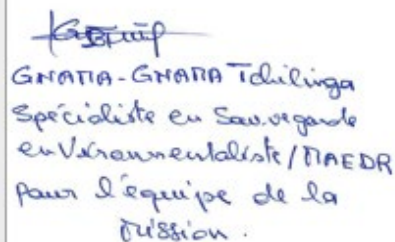 GNAMA-GNAMA Tchilinga
Spécialiste en Sauvegarde
environnementaliste/MAEDR
pour l'équipe de la
mission.